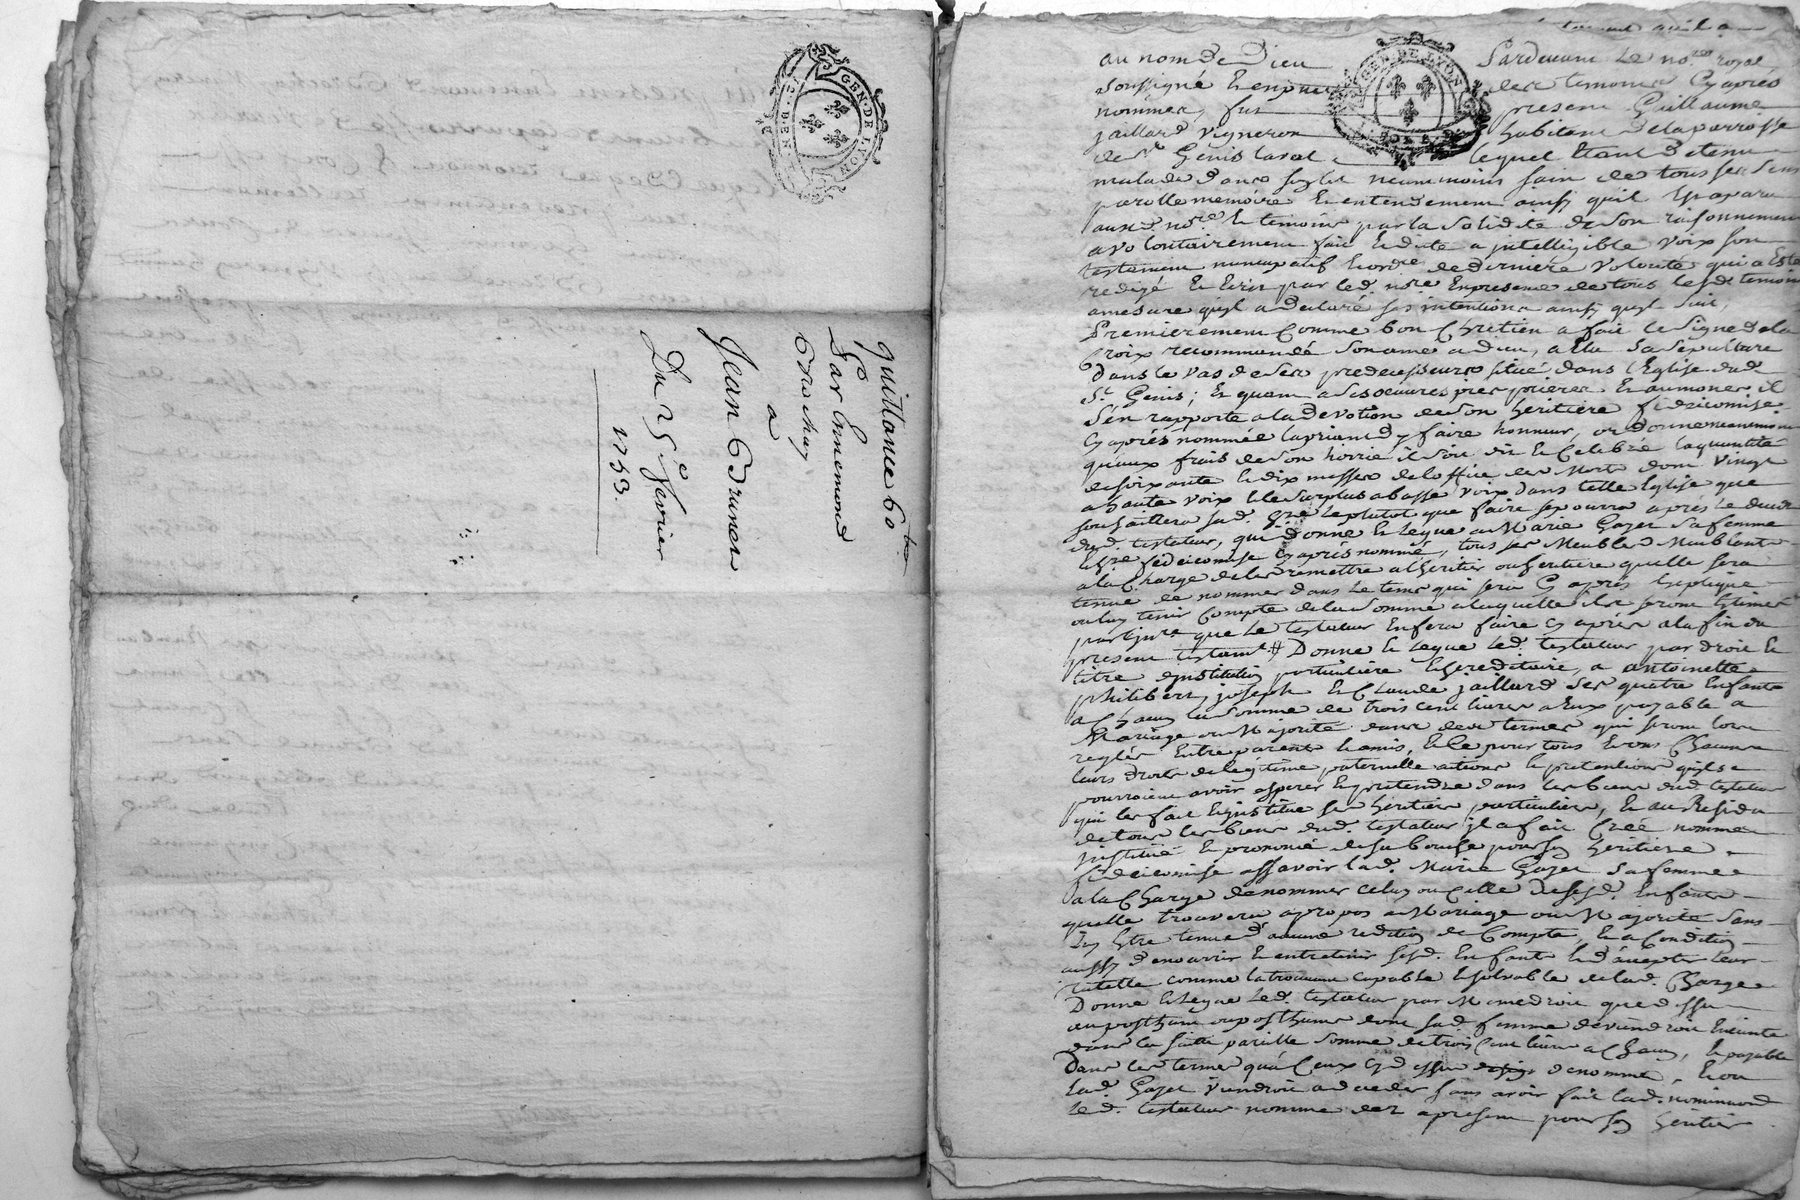 GEN. DE LYON
quittance 60
par Ennemond
Brachay
a
Jean Bruner
Du 25e fevrier
1753.
GEN. DE LYON
au nom de Dieu Pardevant Le nore royal
soussigné Et en presence des temoins Cyaprés
nommés, fut present Guillaume
jaillard vigneron habitant de la parroisse
de St Genis Laval lequel Etant detenu
malade dans son lit neanmoins sain de tous ses sens
parolle memoire Et entendement ainsy qu'il Est aparu
aud. nore Et temoins par la solidité de son raisonnement
a volontairement fait Et dicté a jntelligible voix son
testament nuncupatif Et ordre de derniere volonté qui a Esté
redigé En Ecrit par led. nore En presence de tous lesd. temoins
amesure qu'il a declaré ses intentions ainsy qu'il suit,
Premierement Comme bon Chretien a fait le signe de la
Croix recommandé son ame a Dieu, a Elu sa sepulture
dans le vas de ses predecesseurs situé dans l'Eglise dud.
St Genis; Et quant a ses oeuvres pies prieres Et aumones il
s'en rapporte a la devotion de son heritiere fideicomise
Cyaprés nommée la priant d'y faire honneur, ordonne neanmoins
qu'aux frais de son hoirie il soit dit Et Celebré la quantité
de soixante Et dix messes de l'office des Morts dont vingt
a haute voix Et le surplus a basse voix dans telle Eglise que
souhaittera sad. hre Le plutot que faire se pourra aprés Le deceds
dud. testateur, qui donne Et Legue a Marie Gayet sa femme
hre fideicomise Cyaprés nommé, tous ses Meubles Meublants
a la Charge de les remettre a l'heritier ou heritiere qu'elle sera
tenue de nommer dans Le tems qui sera Cy aprés Expliqué
ou luy tenir Compte de la somme a laquelle ils seront Estimés
par que Le testateur En fera faire Cy aprés a la fin du
present testamt Donne Et Legue Led. testateur par droit Et
titre d'institution particuliere Et hereditaire, a antoinette
philibert, joseph Et Claude jaillard ses quatre Enfants
a Chacun la somme de trois Cent livres a Eux payable a
Mariage ou Majorité dans deux termes qui seront lors
reglés Entre parents Et amis, Et Ce pour tous Et uns Chacuns
leurs droits de legitime paternelle actions Et pretentions qu'ils
pourroient avoir esperer Et pretendre dans les biens dud. testateur
qui les fait Et jnstitue ses heritiers particuliers, Et au Residu
de tous les biens dud. testateur jl a fait Créé nommé
jnstitué Et prononcé de sa bouche pour son heritiere
fideicomise assavoir lad. Marie Gayet sa femme
a la Charge de nommer celuy ou Celle de sesd. Enfants
quelle trouvera apropos a Mariage ou Majorité sans
En Etre tenue d'aucune redition de Compte, Et a Condition
aussy de nourrir Et entretenir sesd. Enfants Et d'accepter leur
tutelle comme la trouvant capable Et solvable de lad. Charge
Donne Et Legue Led. testateur par Meme droit que dessus
au posthume ou posthumes dont sad. femme deviendroit Enceinte
dans la suitte pareille somme de trois Cent livres a Chacun, Et payable
Dans les termes qu'a Ceux Cy dessus denommés, Et ou
Lad. Gayet viendroit a deceder sans avoir fait lad. nomination
Led. testateur nomme dez apresent pour son heritier